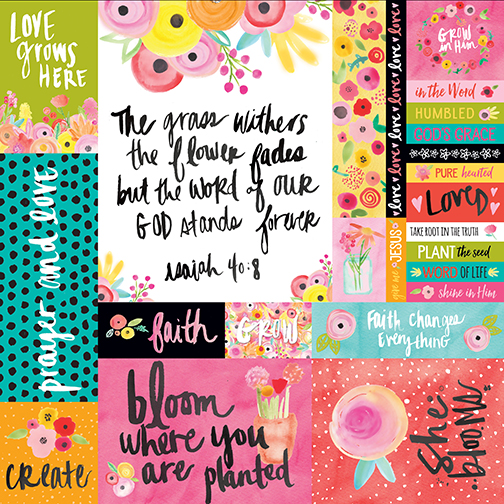 LOVE
grows
HERE
The grass withers
the flower fades
but the word of OUR
GOD stands forever
Isaiah 40:8
love ♥ love ♥ love ♥ love ♥ love
GROW
in Him
in the Word
HUMBLED
GOD'S GRACE
PURE hearted
LOVED
TAKE ROOT IN THE TRUTH
PLANT the seed
WORD OF LIFE
shine in Him
give me JESUS
prayer and love
faith
GROW
FAITH CHANGES
EVERYTHING
create
bloom
where you
are planted
she
blooms